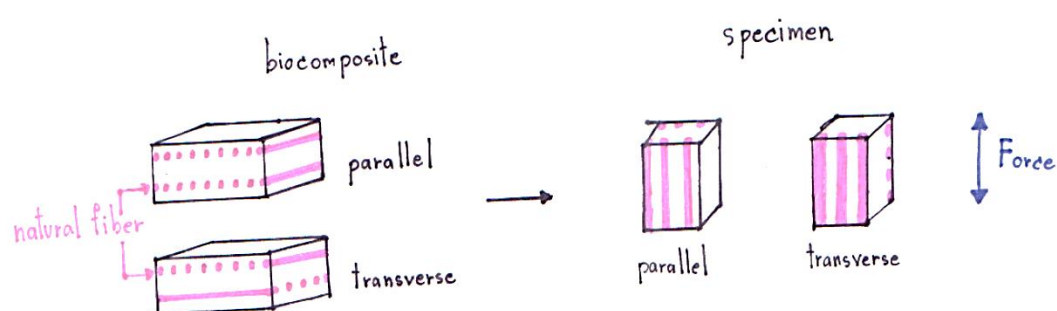 biocomposite
specimen
parallel
natural fiber
transverse
parallel
transverse
Force